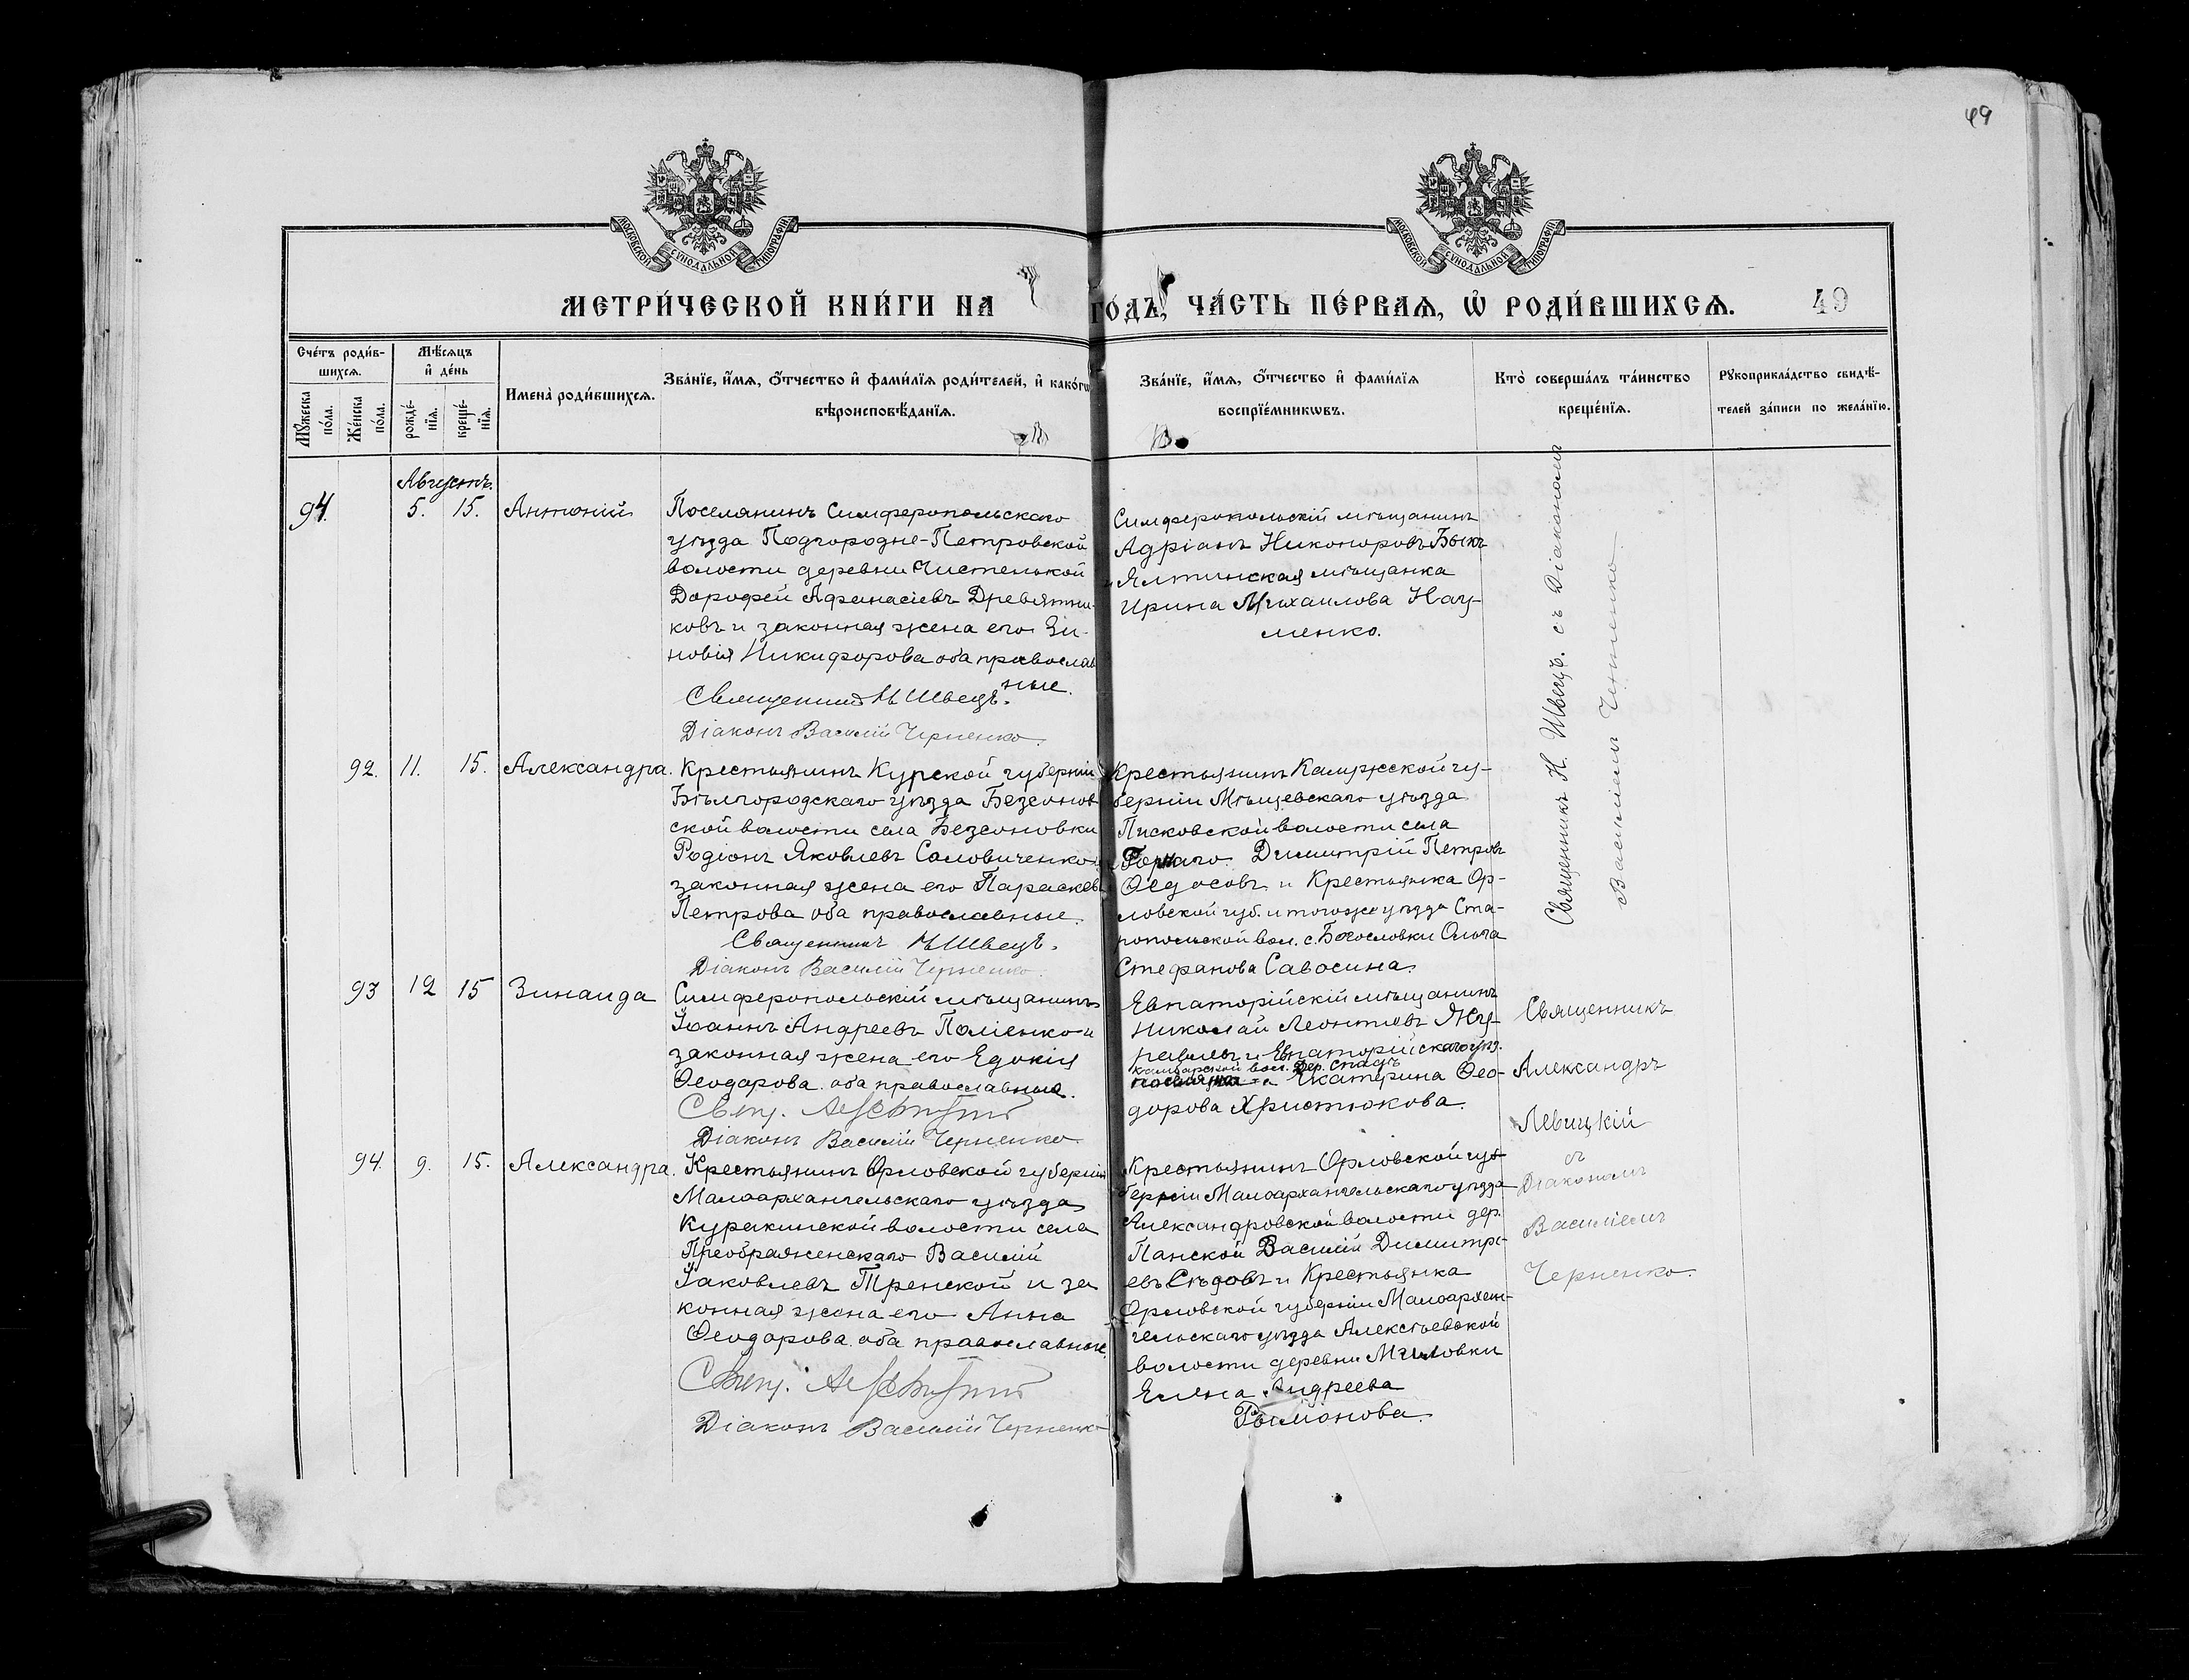 49
МОСКОВСКОЙ СѴНОДАЛЬНОЙ ТИПОГРАФІИ
МОСКОВСКОЙ СѴНОДАЛЬНОЙ ТИПОГРАФІИ
МЕТРИ́ЧЕСКОЙ КНИ́ГИ НА ГО́ДЪ, ЧА́СТЬ ПЕ́РВАѦ, Ѽ РОДИ́ВШИХСѦ. 49
Счéтъ роди́в-
шихсѧ.
Мꙋ́жеска по́ла.
Жéнска по́ла.
Мѣ́сѧцъ
и҆ дéнь
рождé-
нїѧ.
крещé-
нїѧ.
И҆мена̀ роди́вшихсѧ.
Зва́нїе, и҆́мѧ, о҆́тчество и҆ фами́лїѧ роди́телей, и҆ како́гѡ
вѣроисповѣ́данїѧ.
Зва́нїе, и҆́мѧ, о҆́тчество и҆ фами́лїѧ
воспрїе́мникѡвъ.
Кто̀ соверша́лъ та́инство
креще́нїѧ.
Рꙋкоприкла́дство свидѣ́-
телей за́писи по жела́нїю.
Августъ.
94. 5. 15. Антоній
Поселянинъ Симферопольскаго
уѣзда Подгородне-Петровской
волости деревни Чистенькой
Дорофей Афанасіевъ Древятни-
ковъ и законная жена его Зи-
новія Никифорова оба православ
ные.
Священникъ Н Швецъ.
Діаконъ Василій Черненко.
Симферопольскій мѣщанинъ
Адріанъ Никоноровъ Быкъ
и Ялтинская мѣщанка
Ирина Михаилова Нау-
менко.
Священникъ Н. Швецъ. съ Діакономъ
Василіемъ Черненко.
92. 11. 15. Александра.
Крестьянинъ Курской губерніи
Бѣлгородскаго уѣзда Безсонов
ской волости села Безсоновки
Родіонъ Яковлевъ Саловиченко и
законная жена его Параскева
Петрова оба православные.
Священникъ Н Швецъ.
Діаконъ Василій Черненко.
Крестьянинъ Калужской гу-
берніи Мѣщевскаго уѣзда
волости села
Димитрій Петровъ
Ѳедосовъ и Крестьянка Ор-
ловской губ. и тогоже уѣзда Ста-
ропольской вол. с. Богословки Ольга
Стефанова Савосина.
93 12 15 Зинаида
Симферопольскій мѣщанинъ
Іоаннъ Андреевъ Поліенко и
законная жена его Едокія
Ѳеодорова оба православные.
Свящ.
Діаконъ Василій Черненко
Евпаторійскій мѣщанинъ
Николай Леонтіевъ Жу-
равлевъ и Евпаторійскаго уѣз.
вол. дер.
Екатерина Ѳео-
дорова Христюкова.
Священникъ
Александръ
Левицкій
съ
Діакономъ
Василіемъ
Черненко.
94. 9. 15. Александра.
Крестьянинъ Орловской губерніи
Малоархангельскаго уѣзда
Куракинской волости села
Преображенскаго Василій
Іаковлевъ Тренской и за
конная жена его Анна
Ѳеодорова оба православные.
Свящ.
Діаконъ Василій Черненко
Крестьянинъ Орловской гу-
берніи Малоархангельскаго уѣзда
Александровской волости дер.
Панской Василій Димитрі-
евъ Сѣдовъ и Крестьянка
Орловской губерніи Малоархан-
гельскаго уѣзда Алексѣевской
волости деревни
Елена Андреева